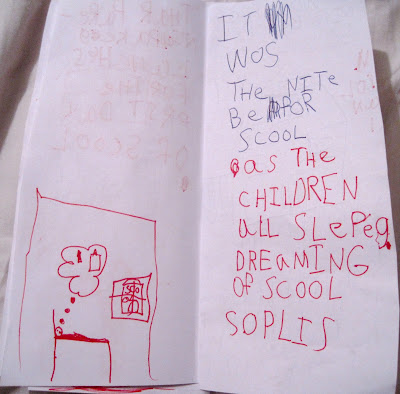 IT
WOS
THE NITE
BeFOR
SCOOL
as THE
CHILDREN
all SLePeg
DREAMING
OF SCOOL
SOPLIS